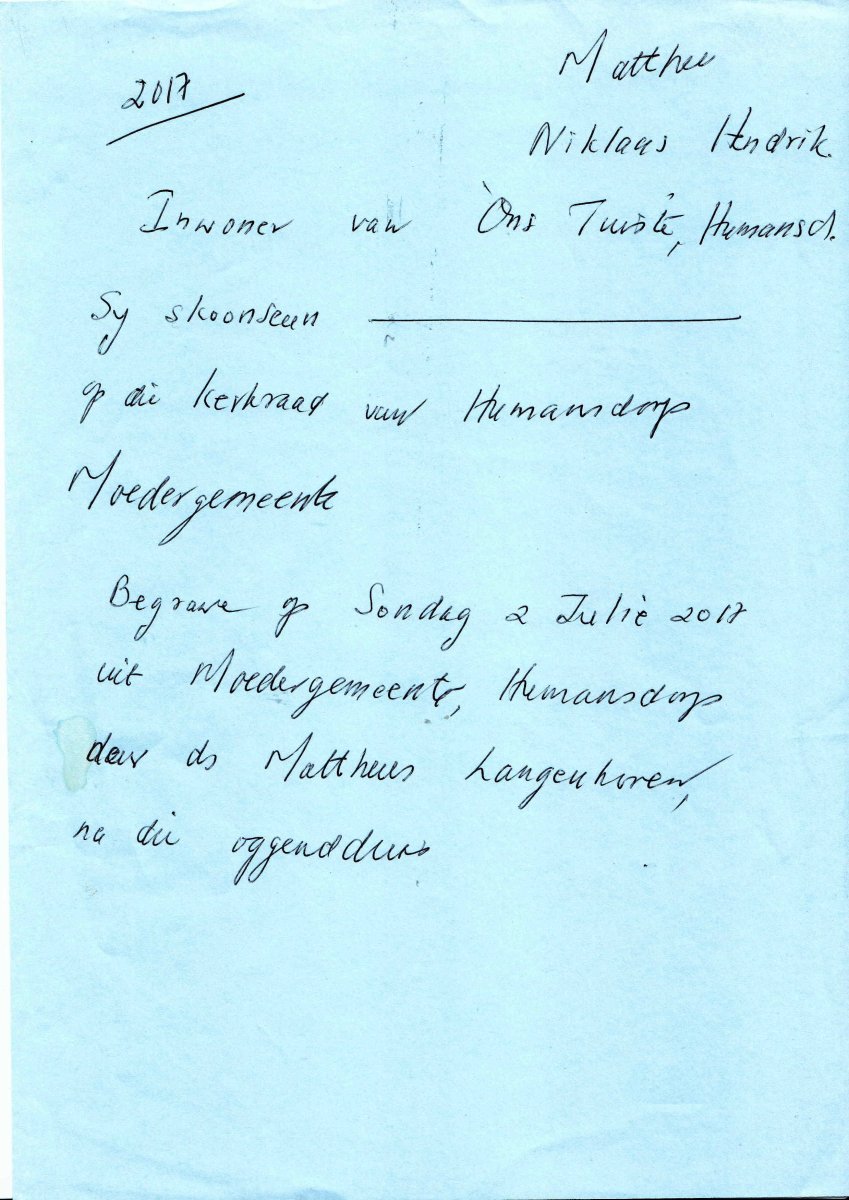 2017
Matthee
Niklaas Hendrik.
Inwoner van 'Ons Tuiste', Humansd.
Sy skoonseun
op die kerkraad van Humansdorp
Moedergemeente
Begrawe op Sondag 2 Julie 2017
uit Moedergemeente, Humansdorp
deur ds Mattheus Langenhoven,
na die oggenddiens